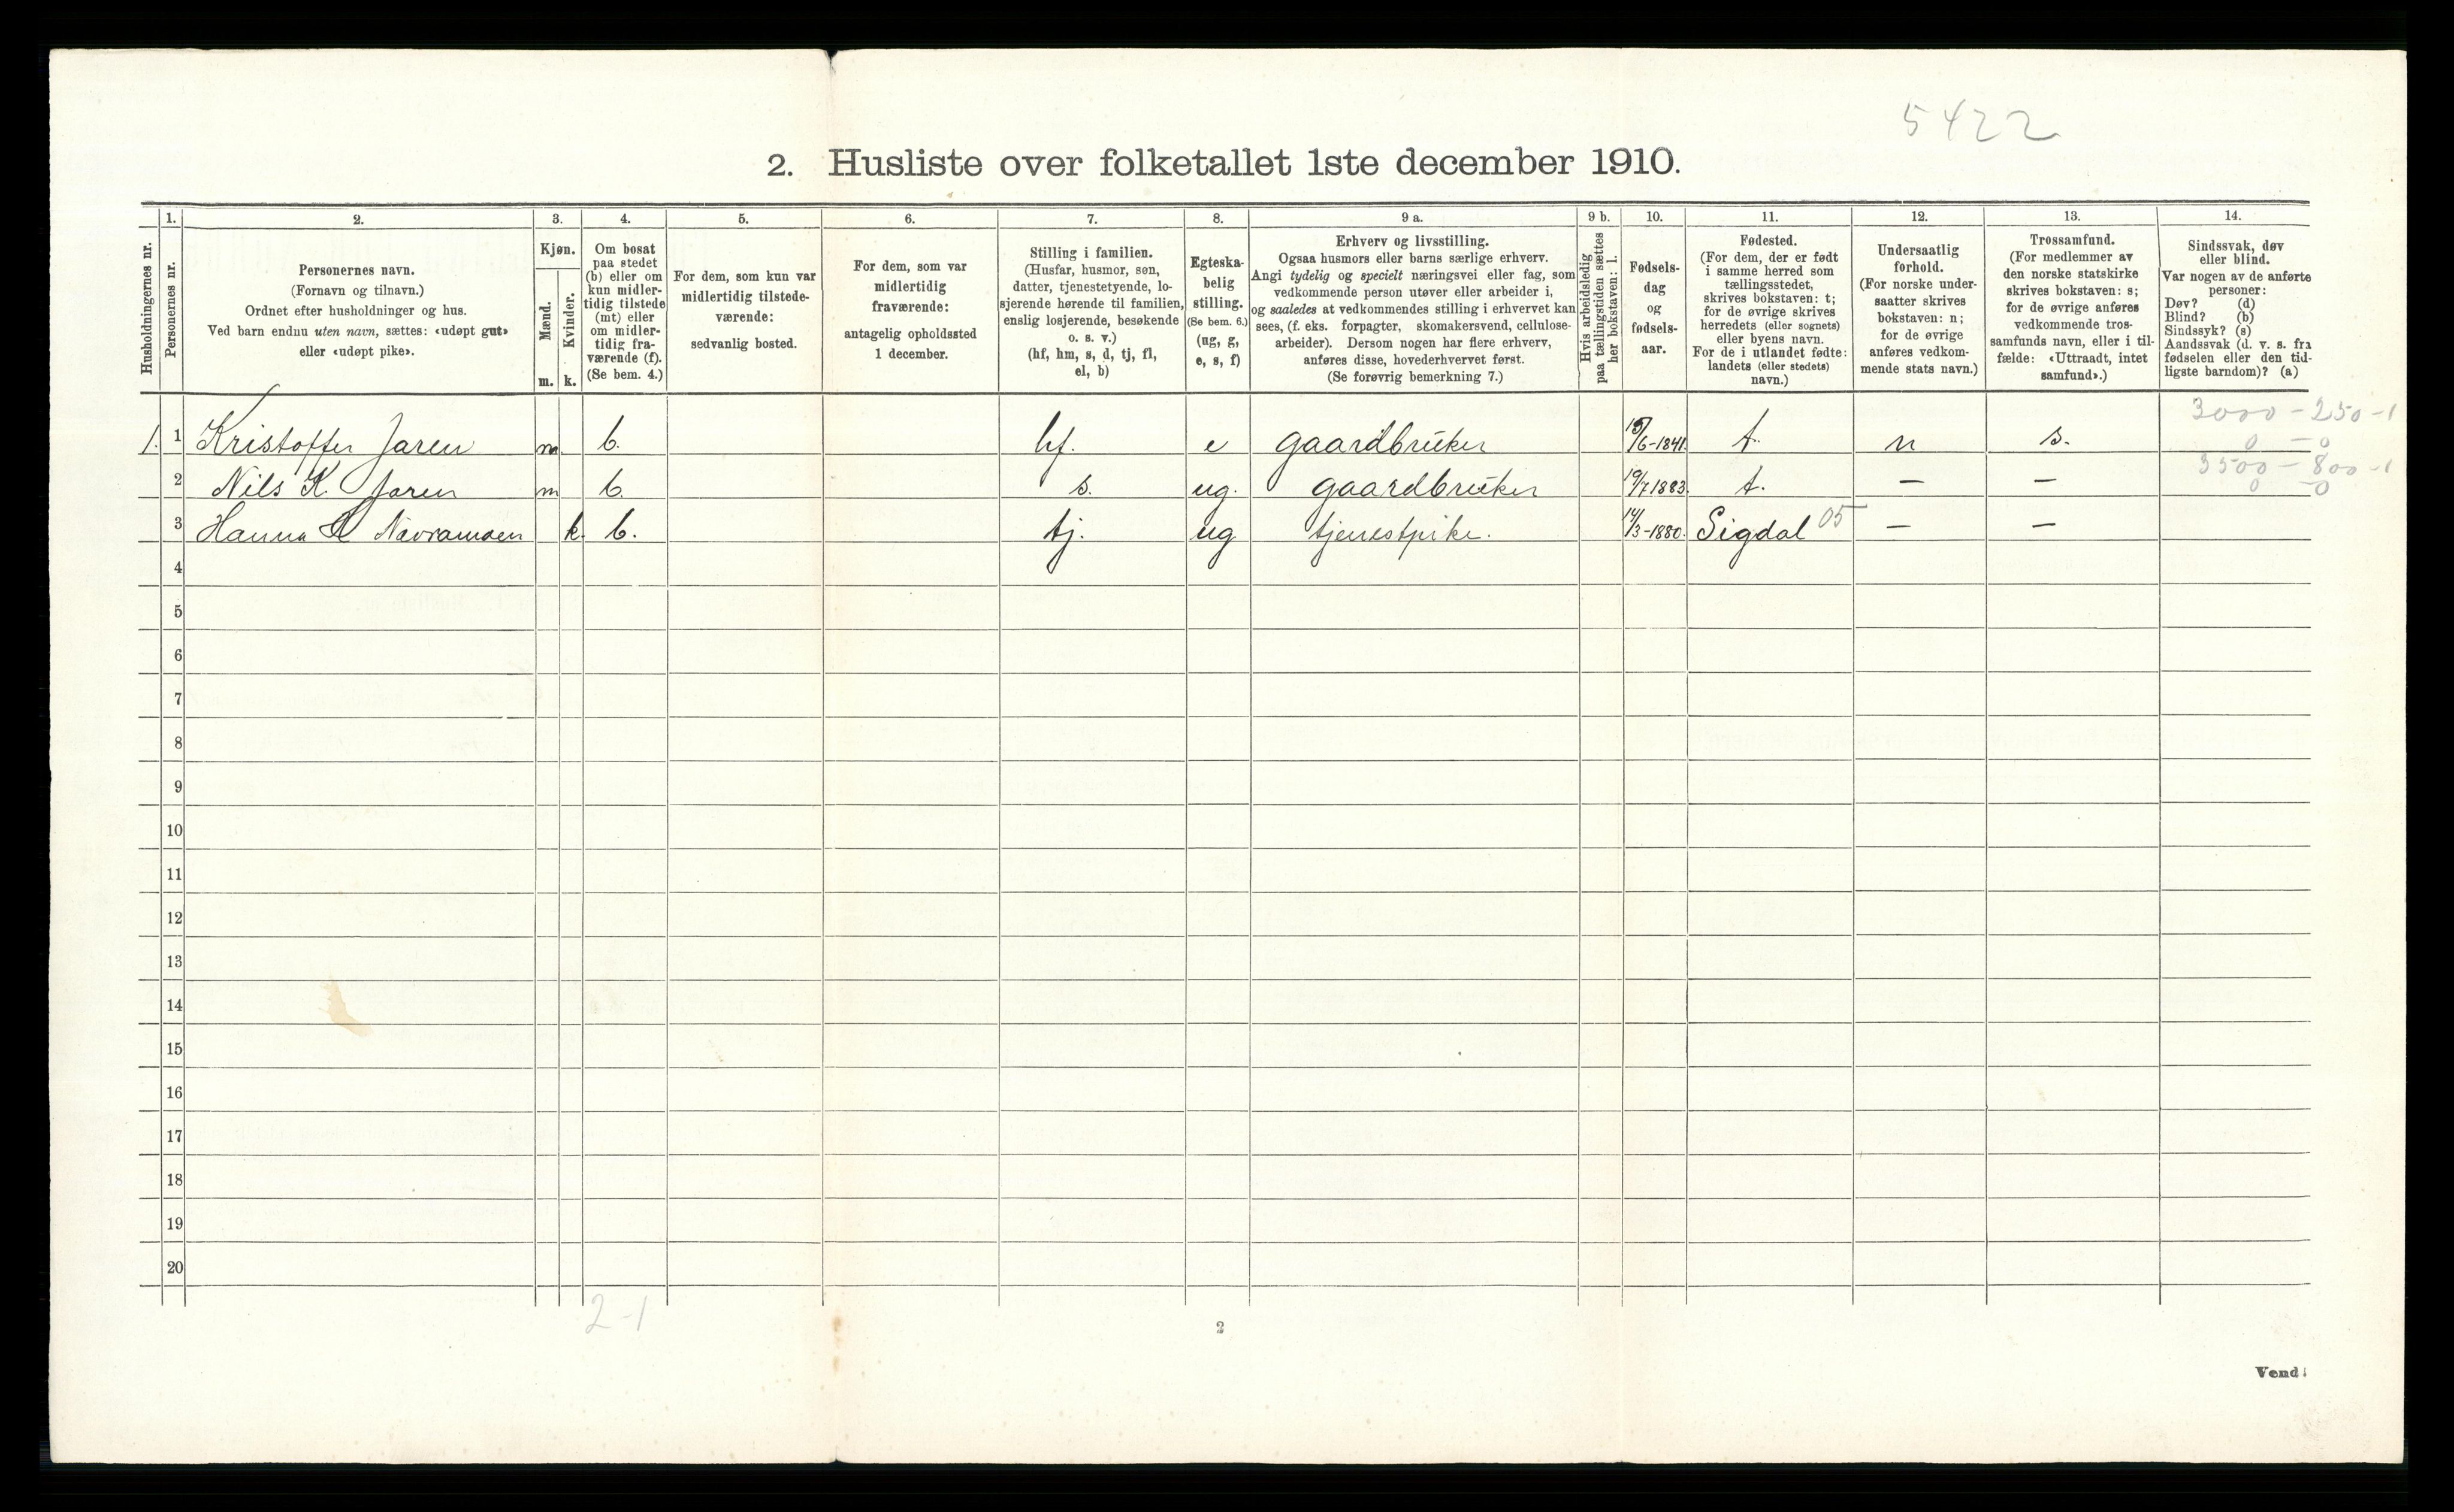 5422
2. Husliste over folketallet 1ste december 1910.
Husholdningernes nr.
1.
Personernes nr.
2.
Personernes navn.
(Fornavn og tilnavn.)
Ordnet efter husholdninger og hus.
Ved barn endnu uten navn, sættes: «udøpt gut»
eller «udøpt pike».
3.
Kjøn.
Mænd.
Kvinder.
m. k.
4.
Om bosat
paa stedet
(b) eller om
kun midler-
tidig tilstede
(mt) eller
om midler-
tidig fra-
værende (f).
(Se bem. 4.)
5.
For dem, som kun var
midlertidig tilstede-
værende:
sedvanlig bosted.
6.
For dem, som var
midlertidig
fraværende:
antagelig opholdssted
1 december.
7.
Stilling i familien.
(Husfar, husmor, søn,
datter, tjenestetyende, lo-
sjerende hørende til familien,
enslig losjerende, besøkende
o. s. v.)
(hf, hm, s, d, tj, fl,
el, b)
8.
Egteska-
belig
stilling.
(Se bem. 6.)
(ug, g,
e, s, f)
9 a.
Erhverv og livsstilling.
Ogsaa husmors eller barns særlige erhverv.
Angi tydelig og specielt næringsvei eller fag, som
vedkommende person utøver eller arbeider i,
og saaledes at vedkommendes stilling i erhvervet kan
sees, (f. eks. forpagter, skomakersvend, cellulose-
arbeider). Dersom nogen har flere erhverv,
anføres disse, hovederhvervet først.
(Se forøvrig bemerkning 7.)
9 b.
Hvis arbeidsledig
paa tællingstiden sættes
her bokstaven: l.
10.
Fødsels-
dag
og
fødsels-
aar.
11.
Fødested.
(For dem, der er født
i samme herred som
tællingsstedet,
skrives bokstaven: t;
for de øvrige skrives
herredets (eller sognets)
eller byens navn.
For de i utlandet fødte:
landets (eller stedets)
navn.)
12.
Undersaatlig
forhold.
(For norske under-
saatter skrives
bokstaven: n;
for de øvrige
anføres vedkom-
mende stats navn.)
13.
Trossamfund.
(For medlemmer av
den norske statskirke
skrives bokstaven: s;
for de øvrige anføres
vedkommende tros-
samfunds navn, eller i til-
fælde: «Uttraadt, intet
samfund».)
14.
Sindssvak, døv
eller blind.
Var nogen av de anførte
personer:
Døv? (d)
Blind? (b)
Sindssyk? (s)
Aandssvak (d. v. s. fra
fødselen eller den tid-
ligste barndom)? (a)
3000 - 250 - 1
1. 1 Kristoffer Jaren m b. hf. e gaardbruker /6-1841. t. n s. 0 - 0
3500 - 800 - 1
2 Nils K. Jaren m b. s. ug. gaardbruker 19/7 1883. t. — — 0 - 0
3 Hanna Nævramoen k. b. tj. ug tjenestpike. 14/3-1880. Sigdal 05 — —
4
5
6
7
8
9
10
11
12
13
14
15
16
17
18
19
20
2-1
2
Vend!